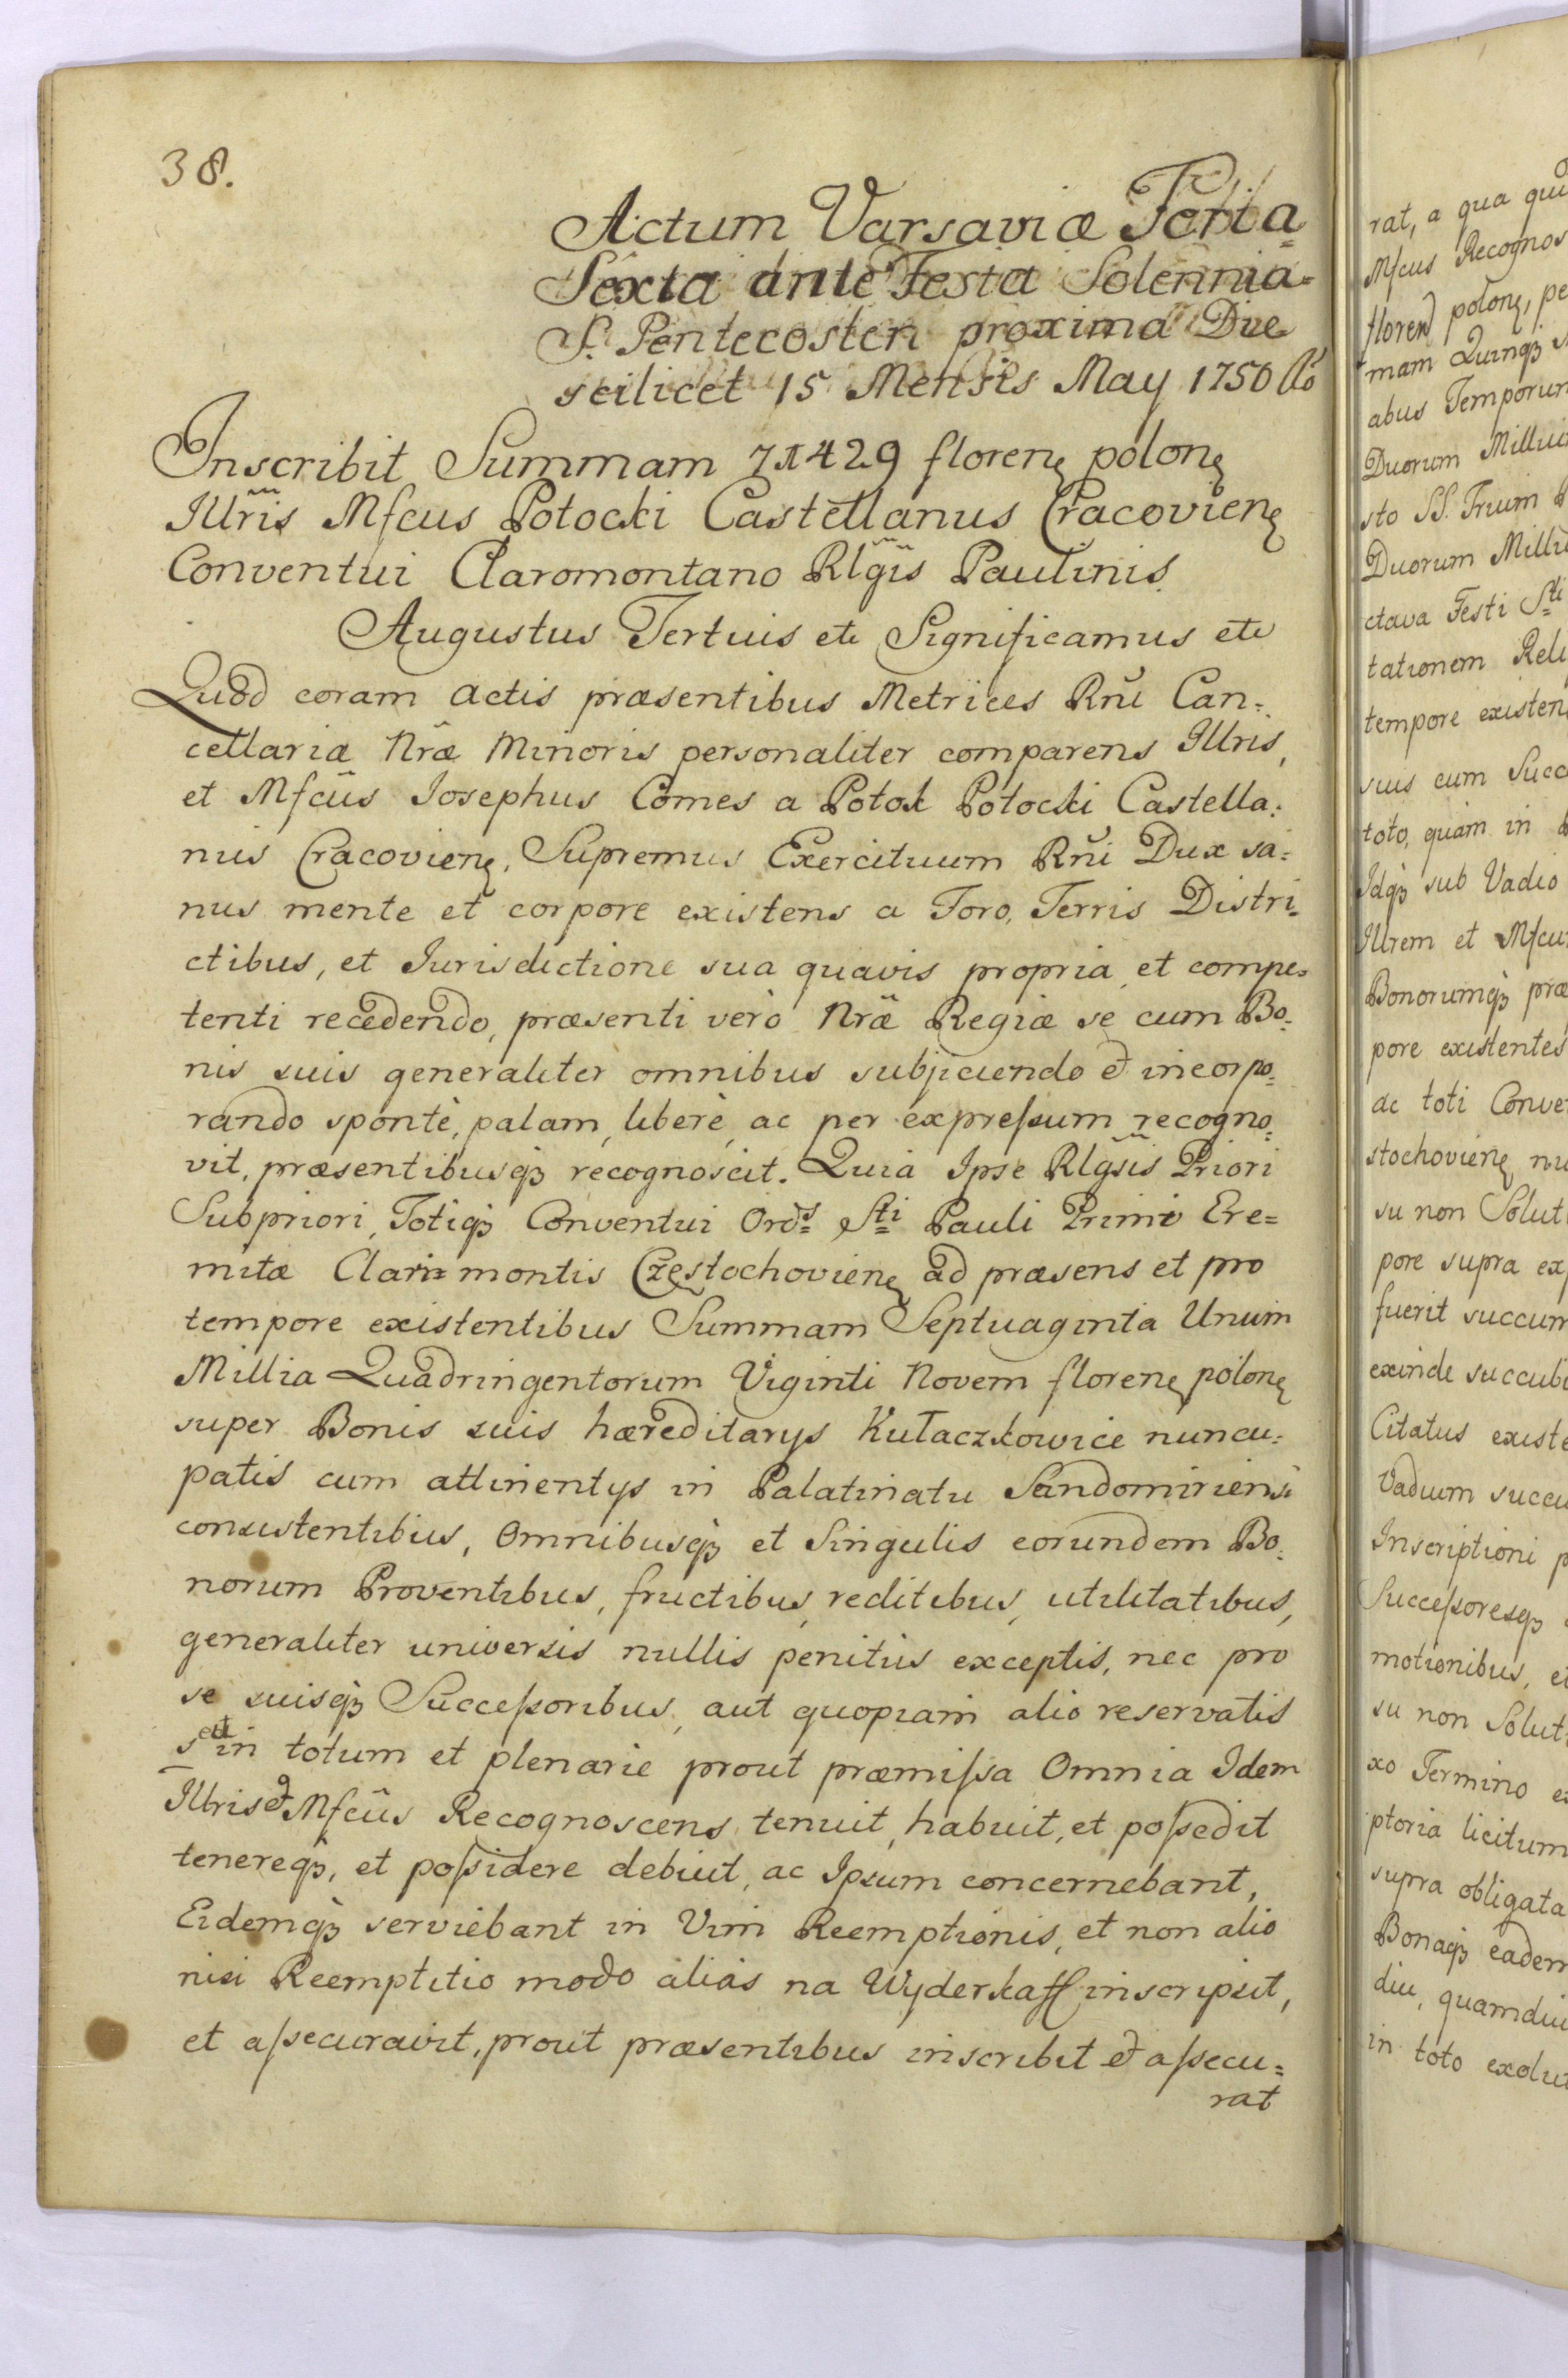 38.
Actum Varsaviæ Feria
Sexta ante Festa Solennia
S. Pentecosten proxima Die
scilicet 15 Mensis May 1750
Inscribit Summam 71429 florenę polonę
Illris Mfcus Potocki Castellanus Cracovienę
Conventui Claromontano Rlgis Paulinis.
Augustus Tertuis etc Significamus etc
Quod coram actis præsentibus Metrices Rñi Can=
cellariæ Nræ Minoris personaliter comparens Illris,
et Mfcus Iosephus Comes a Potok Potocki Castella=
nus Cracovienę, Supremus Exercituum Rñi Dux sa=
nus mente et corpore existens a Foro, Terris Distri=
ctibus, et Iurisdictione sua quavis propria et compe=
tenti recedendo, præsenti verò Nræ Regiæ se cum Bo=
nis suis generaliter omnibus subjiciendo et incorpo=
rando spontè, palam, liberè, ac per expreſsum recogno=
vit, præsentibusqȝ recognoscit. Quia Ipse Rlgsis Priori
Subpriori, Totiqȝ Conventui Ords Sti Pauli Primi Ere=
mitæ Clari montis Częstochovienę ad præsens et pro
tempore existentibus Summam Septuaginta Unum
Millia Quadringentorum Viginti Novem florenę polonę
super Bonis suis hæreditarys Kułaczkowice nuncu=
patis cum attinentys in Palatinatu Sandomiriensi
consistentibus, Omnibusqȝ et Singulis eorundem Bo=
norum Proventibus, fructibus, reditibus, utilitatibus,
generaliter universis nullis penitus exceptis, nec pro
se suisqȝ Succeſsoribus, aut quopiam alio reservatis
sed in totum et plenarie prout præmiſsa Omnia Idem
Illris et Mfcus Recognoscens tenuit, habuit, et poſsedit
tenereqȝ, et poſsidere debuit, ac Ipsum concernebant,
Eidemqȝ serviebant in Vim Reemptionis, et non alio
nisi Reemptitio modo aliàs na Wyderkaff inscripsit,
et aſsecuravit, prout præsentibus inscribit et aſsecu=
rat
rat, a qua
Mfcus Recognos
florend polonę, pe
mam Quinqȝ
abus Temporum
Duorum Milliu
sto SS. Trium
Duorum Milliu
ctava Festi Sti
tationem Reli
tempore existen
suis cum Succ
toto, quam in
Idqȝ sub Vadio
Illrem et Mfcu
Bonorumqȝ præ
pore existentes
ac toti Conve
stochovienę nu
su non Solut
pore supra ex
fuerit succum
exinde succubi
Citatus existe
Vadium succu
Inscriptioni p
Succeſsoresqȝ
motionibus, et
su non Solut
xo Termino e
ptoria licitum
supra obligata
Bonaqȝ eadem
diu, quamdiu
in toto exolu